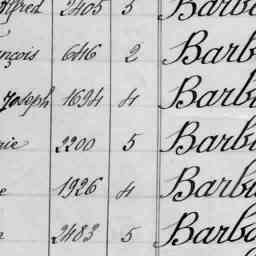 lfred 2405 5 Barb
nçois 646 2 Barb
Joseph 1694 4 Barb
rie 2200 5 Barb
e 1926 4 Barb
2483 5 Barb